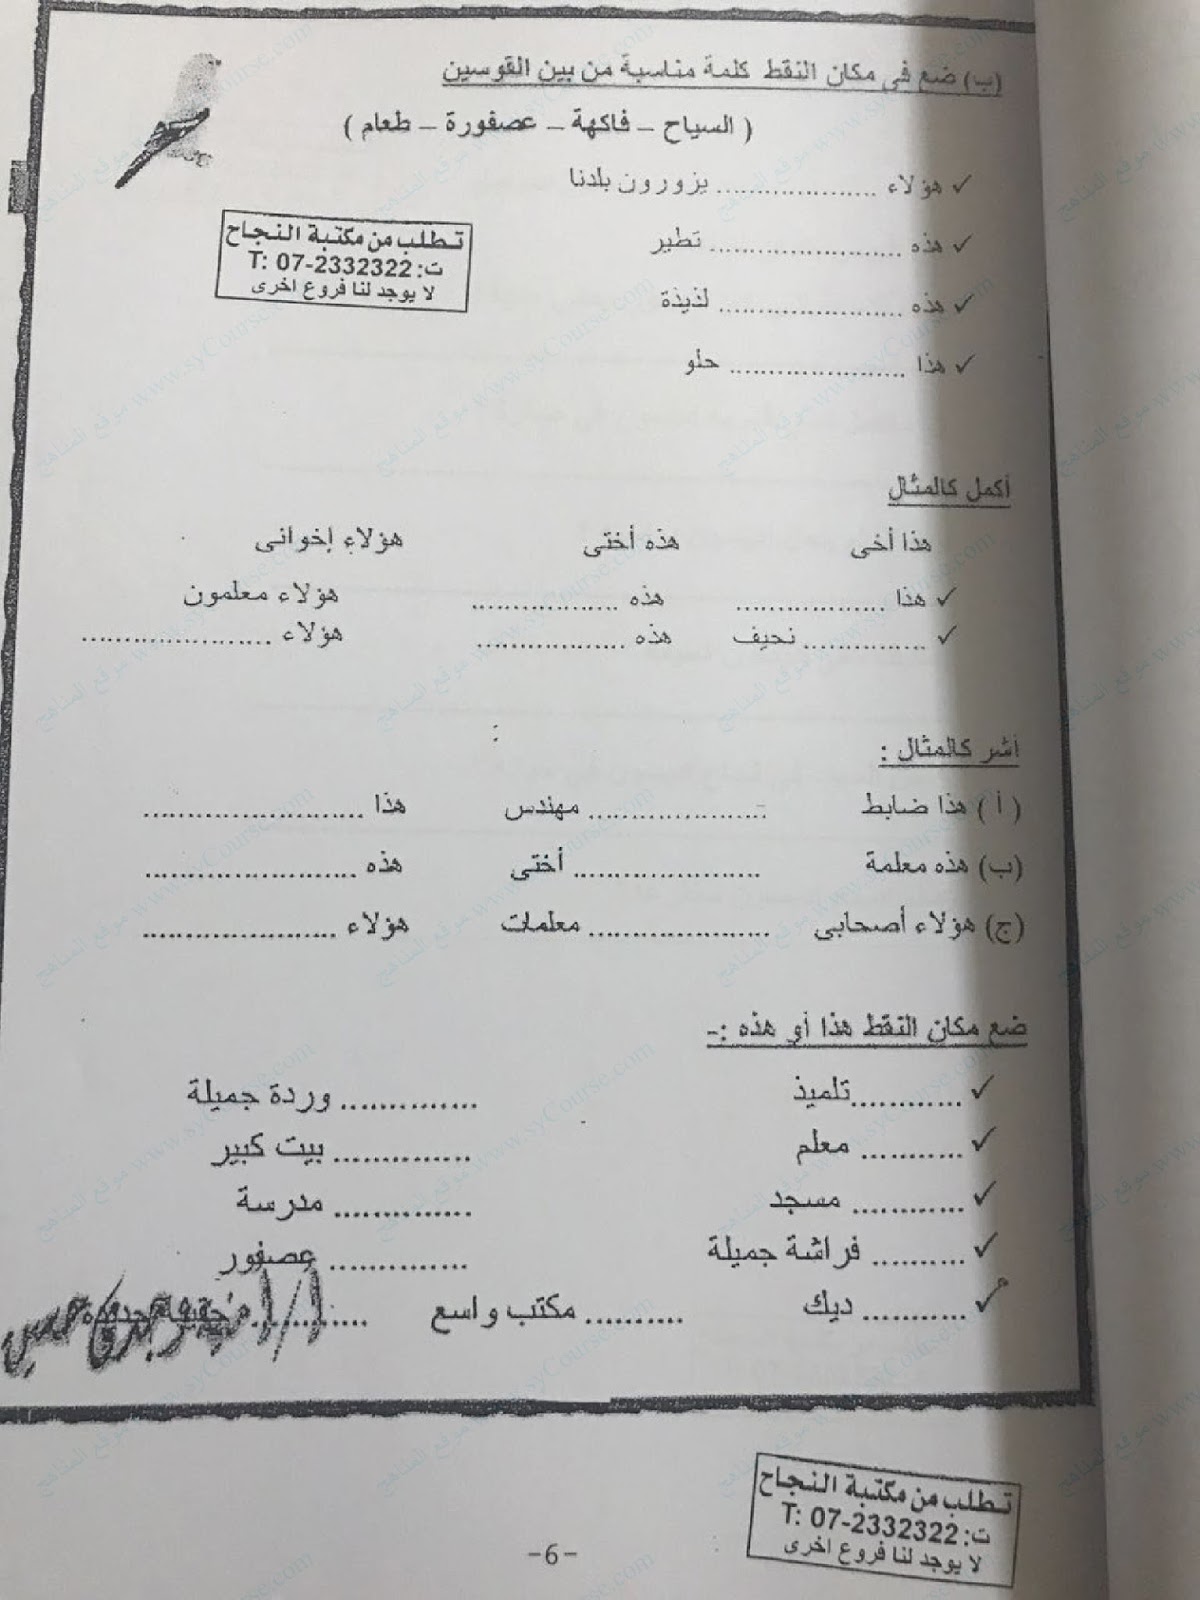 (ب) ضع فى مكان النقط كلمة مناسبة من بين القوسين
( السياح – فاكهة – عصفورة – طعام )
✓ هؤلاء ..................... يزورون بلدنا
✓ هذه ..................... تطير
✓ هذه ..................... لذيذة
✓ هذا ..................... حلو
تطلب من مكتبة النجاح
ت: T: 07-2332322
لا يوجد لنا فروع اخرى
أكمل كالمثال
هذا أخى هذه أختى هؤلاء إخوانى
✓ هذا .................. هذه .................. هؤلاء معلمون
✓ ............... نحيف هذه .................. هؤلاء .......................
أشر كالمثال :
( أ ) هذا ضابط ...................... مهندس هذا ...........................
(ب) هذه معلمة ....................... أختى هذه ..........................
(ج) هؤلاء أصحابى ...................... معلمات هؤلاء ........................
ضع مكان النقط هذا أو هذه :-
✓ ............تلميذ .............. وردة جميلة
✓ ........... معلم .............. بيت كبير
✓ ............ مسجد .............. مدرسة
✓ .......... فراشة جميلة .............. عصفور
✓ ........... ديك .......... مكتب واسع ............ حقيبة جديدة
تطلب من مكتبة النجاح
ت: T: 07-2332322
لا يوجد لنا فروع اخرى
-6-
موقع المناهج www.syCourse.com